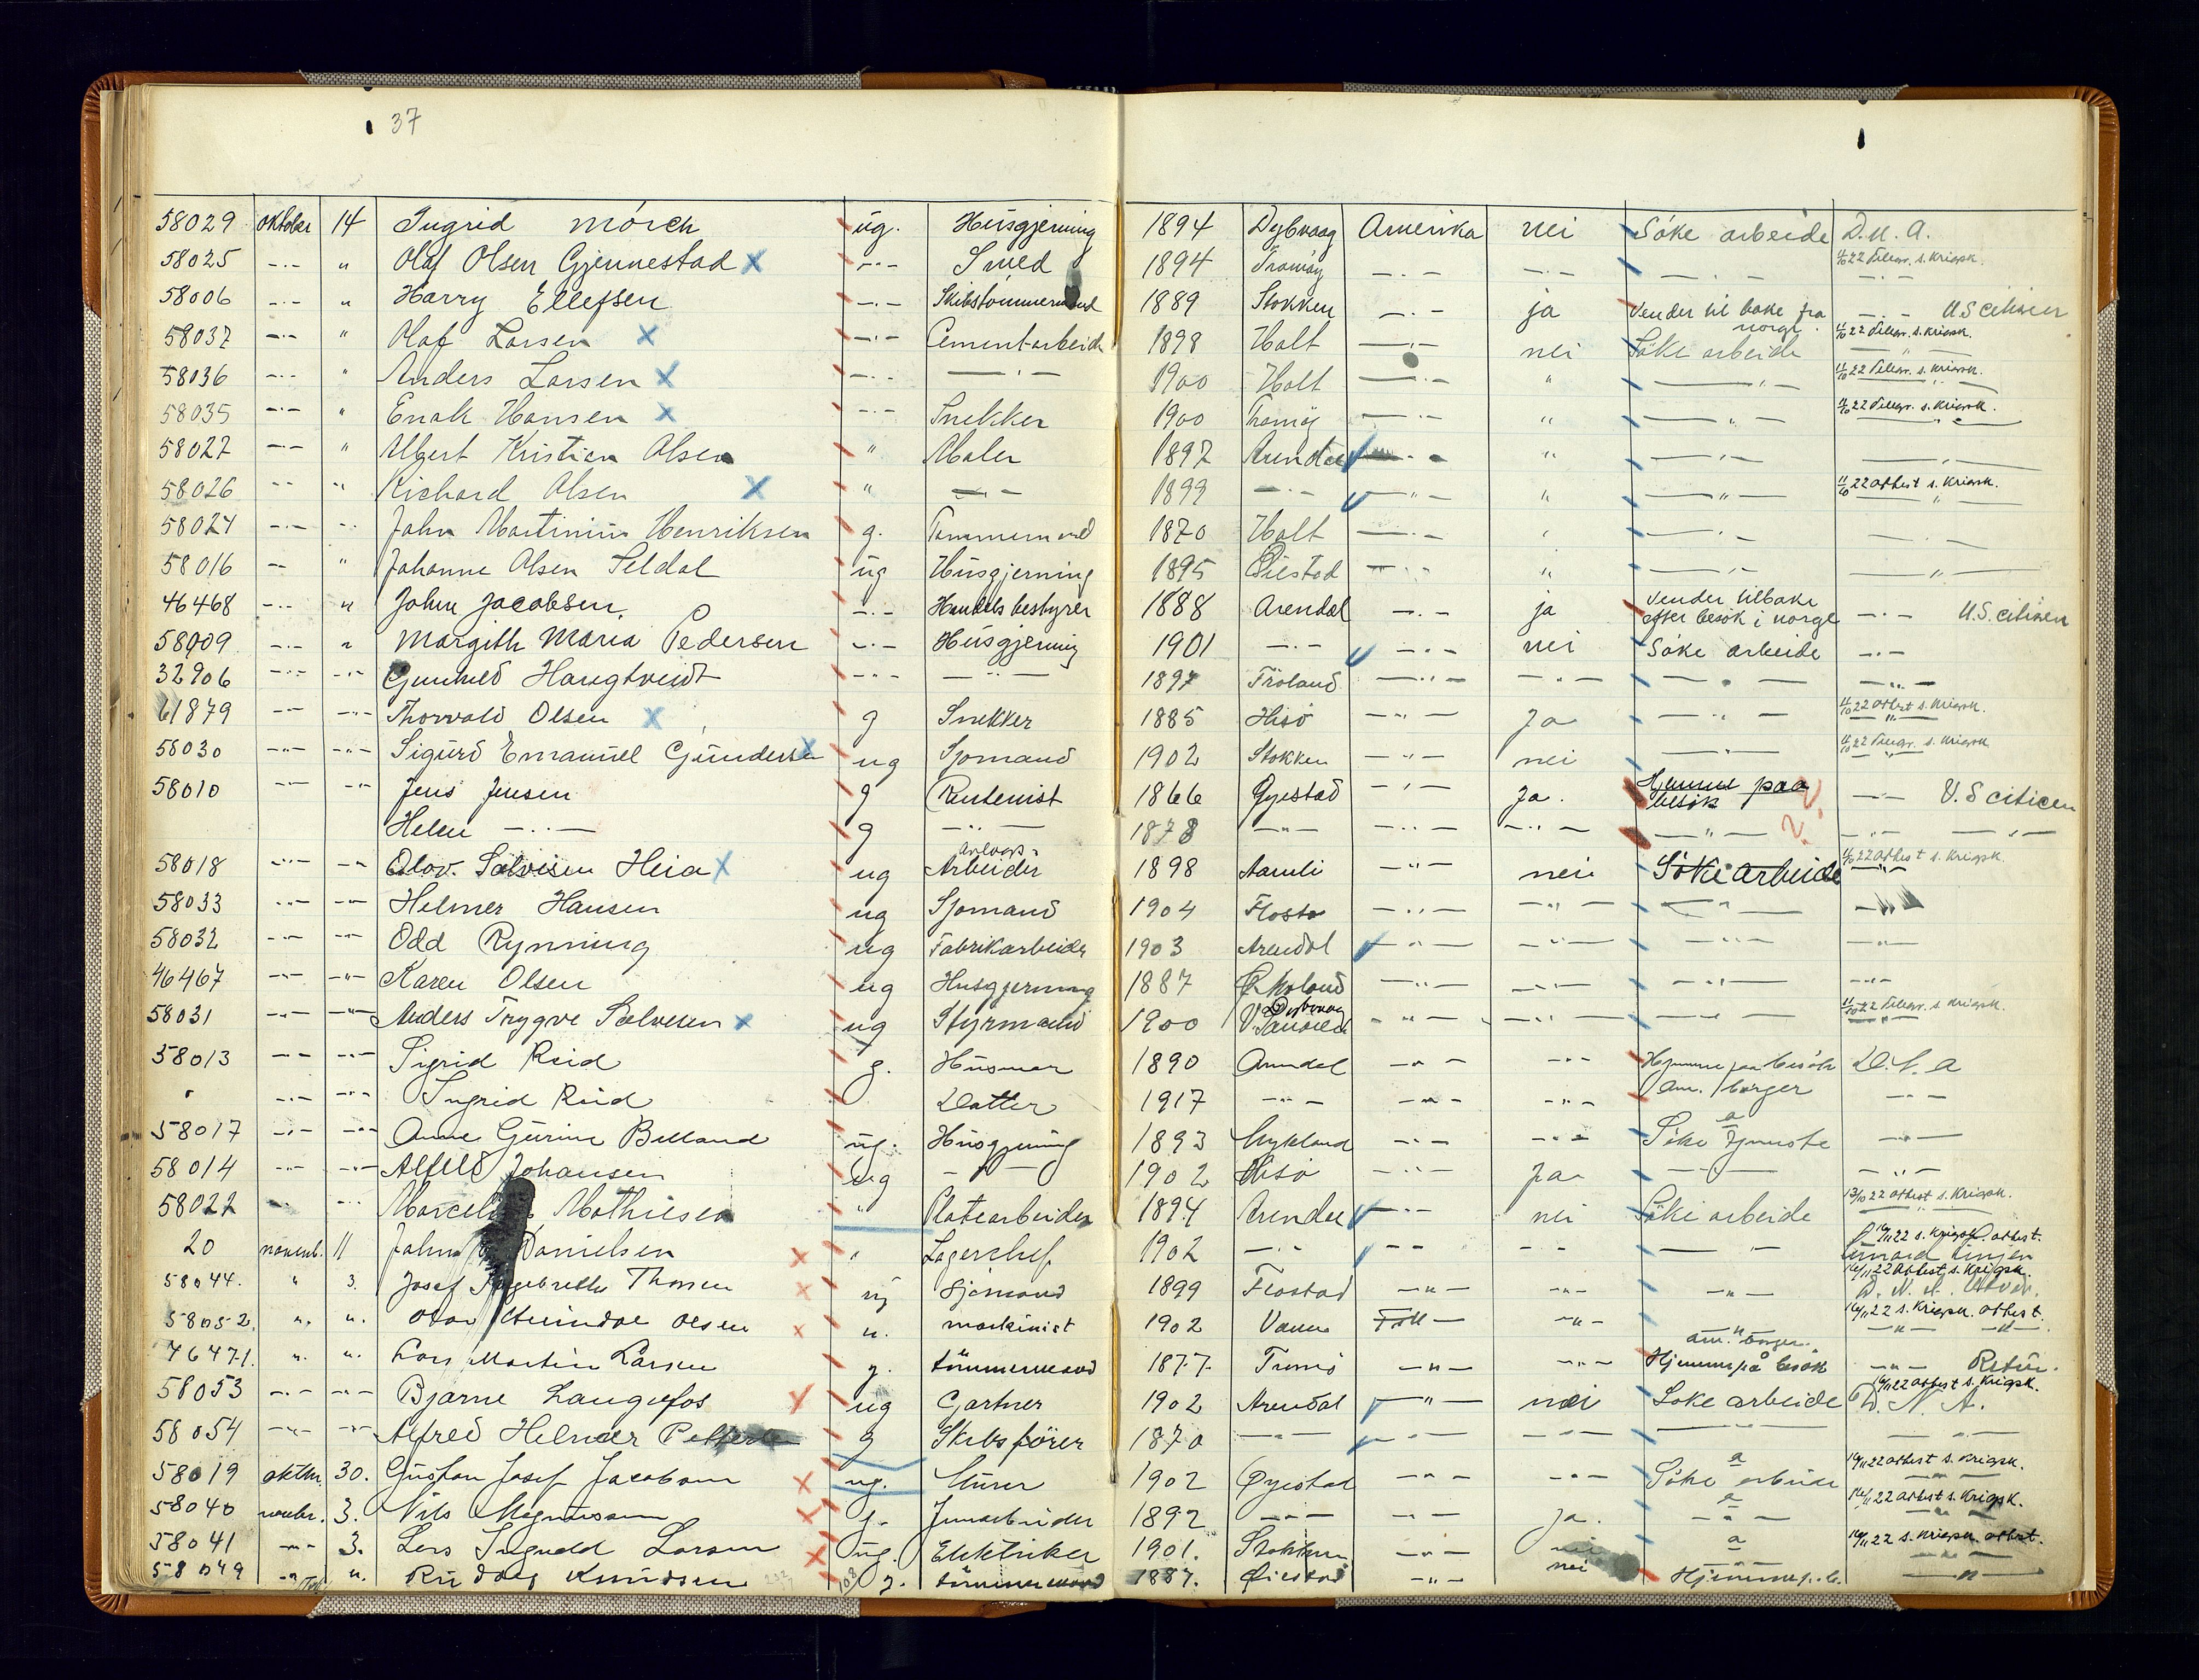 37
58029 oktober 14 Ingrid Mörch ug. Husgjerning 1894 Dybvaag Amerika nei Söke arbeide D.N.A.
11/10 22 Telegr. s. Krigsk.
58025 -.- " Olaf Olsen Gjennestad x -.- Smed 1894 Tromöy -.- -.- -.- -.-
58006 -.- " Harry Ellefsen -.- Skibstömmermand 1889 Stokken -.- ja Vender til bake fra norge. -.- U S citisien
11/10 22 Telegr. s. Krigsk.
58037 -.- " Olaf Larsen x -.- Cementarbeid 1898 Holt -.- nei Söke arbeide -"-
11/10 22 Telegr. s. Krigsk.
58036 -.- " Anders Larsen x -.- -.- 1900 Holt -.- " -"- -"-
11/10 22 Telegr. s. Krigsk.
58035 -.- " Enok Hansen x -.- Snekker 1900 Tromöy -.- " -"- -"-
58027 -.- " Albert Kristian Olsen " Maler 1897 Arendal -.- " -"- -"-
11/10 22 attest s. Krigsk.
58026 -.- " Richard Olsen x " -.- 1899 -.- -"- " -"- "
58024 -.- " John Martinius Henriksen g. Tømmermand 1870 Holt -.- " -.- -.-
58016 -.- " Johanne Olsen Seldal ug Husgjerning 1895 Öiestad -.- " -"- -"-
46468 -.- " John Jacobsen. -.- Handels bestyrer 1888 Arendal -.- ja Vender tilbake efter besök i norge -.- U.S. citisen
58009 -.- " Margith Maria Pedersen -.- Husgjerning 1901 -.- -.- nei Söke arbeide -.-
32906 -.- -.- Gunhild Haugtvedt -.- -"- 1897 Fröland -"- -"- -"- -"-
11/10 22 attest s. Krigsk.
61879 -.- -.- Thorvald Olsen x g Snekker 1885 Hisö -"- Ja -"- -"-
11/10 22 Telegr. s. Krigsk.
58030 -"- -"- Sigurd Emanuel Gundersen x ug Sjomand 1902 Stokken -"- nei -"- -"-
58010 -"- -"- Jens Jensen g Rentenist 1866 Öyestad -"- Ja. Hjemme paa besök -"- U.S citicen
Helen -"- g -"- 1878 -"- -"- -"- -"- 2? -"- -"-
11/10 22 attest s. Krigsk.
58018 -"- -"- Olov. Salvesen Heia x ug Anlægs-Arbeider 1898 Aamli -"- nei Söke arbeide -"-
58033 -"- -"- Helmer Hansen ug Sjomand 1904 Flosta -"- -"- -"- -"-
58032 -"- -"- Odd Rynning ug Fabrikarbeider 1903 Arendal -"- -"- -"- -"-
46467 -"- -"- Karen Olsen ug Husgjerning 1887 -"- -"- -"- -"-
11/10 22 Telegr. s Krigsk.
58031 -"- -"- Anders Trygve Salvesen x ug Styrmand 1900 Dybvaag -"- -"- -"- -"-
58013 -"- -"- Sigrid Ruud g. Husmor 1890 Arendal -"- -"- Hjemme paa besök D.N.A
" -"- -"- Ingrid Ruud Datter 1917 -"- -"- -"- am. borger -"-
58017 -"- -"- Anne Gurine Belland ug. Husgjerning 1893 Mykland -"- -"- Söke tjeneste -"-
58014 -"- -"- Alfild Johansen ug -"- 1902 Hisö -"- ja -"- -"-
13/10 22 attest s. Krigsk.
58022 -"- -"- Mathiesen " Platearbeider 1894 Arendal -"- nei Söke arbeide "
16/11 22 s. Krigsk. attest.
20 novemb. 11 John Danielsen x " Lagerchef 1902 -"- -"- -"- -"- Cunard linjen
16/11 22 attest s. Krigsk.
58044. " 3. Josef Ingebreth Thomsen x ug Sjömand 1899 Flostad -"- -"- -"- D. N. A.
16/11 22 s. Krigsk. attest.
58052. " " Olsen x u. maskinist 1902 -"- -"- -"- -"-
am. borger.
46471. " " Lars Martin Larsen g. tömmermand 1877. Tromö -"- -"- Hjemme på besök -"- Retur.
16/11 22 attest s. Krigsk.
58053 -"- -"- Bjarne Langefos x ug Gartner 1902 Arendal -"- nei Söke arbeide D. N. A.
58054 -"- -"- Alfred Helmer g Skibsförer 1870 -"- -"- -"- -"-
16/11 22 attest s. Krigsk.
58019 oktbr. 30. Gustav Josef Jacobsen x ug. Murer 1902 Öyestad -"- -"- Söke arbeide -"-
16/11 22 attest s. Krigsk.
58040 novbr. 3. Nils x g. Jernarbeider 1892 -"- -"- ja. -"- -"-
16/11 22 s. Krigsk. attest.
58041 -"- 3. Lars Larsen x ug. Elektriker 1901. Stokken -"- nei -"- -"-
58049 -"- " Knudsen g. tömmermand 1887. Öiestad -"- nei Hjemme p. b. -"-